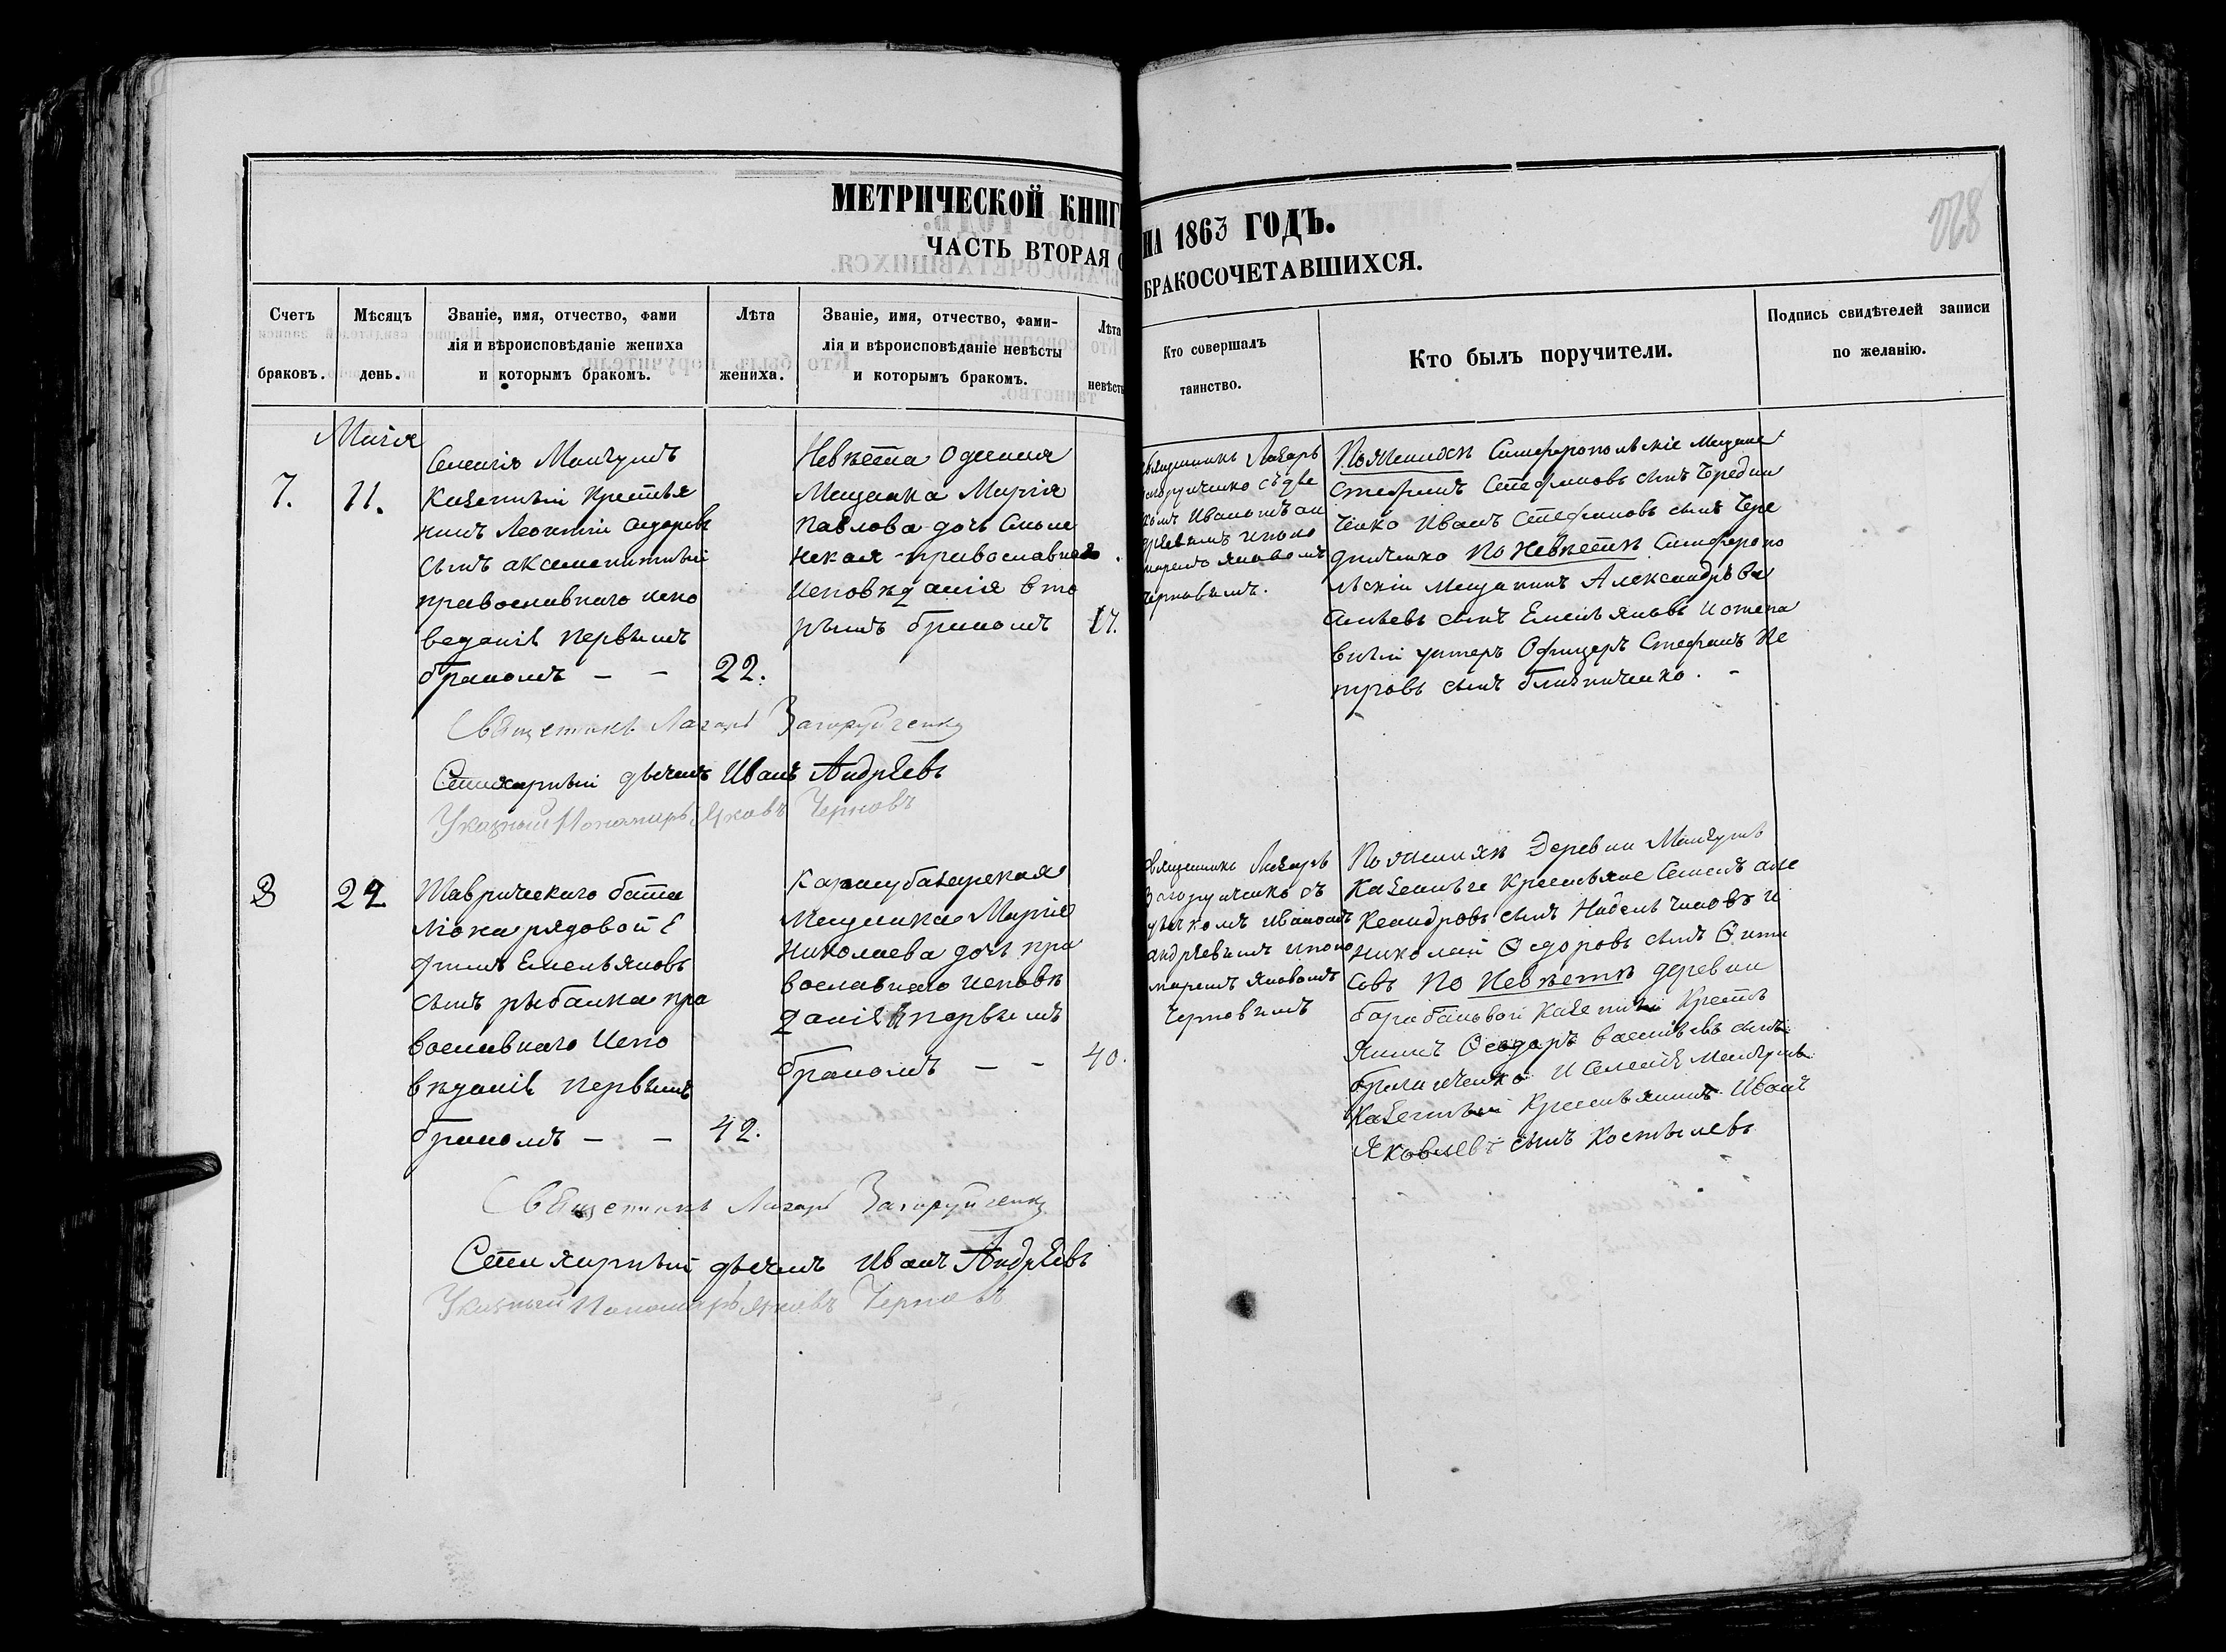 МЕТРИЧЕСКОЙ КНИГ
НА 1863 ГОДЪ.
ЧАСТЬ ВТОРАЯ
БРАКОСОЧЕТАВШИХСЯ.
128
Счетъ браковъ.
Мѣсяцъ день.
Званіе, имя, отчество, фами
лія и вѣроисповѣданіе жениха
и которымъ бракомъ.
Лѣта жениха.
Званіе, имя, отчество, фами-
лія и вѣроисповѣданіе невѣсты
и которымъ бракомъ.
Лѣта невѣсты
Кто совершалъ
таинство.
Кто былъ поручители.
Подпись свидѣтелей записи
по желанію.
Маія
7.
11.
Селенія Мангушъ
Казенный крестья
нинъ Леонтій Сидоровъ
сынъ
православнаго испо
веданія первымъ
бракомъ — —
22.
Невѣста
Мещанка Марія
Павлова дочь
православнаго
исповѣданія вто
рымъ бракомъ
17.
Священникъ Лазарь
Загоруйченко съ дья
комъ Иваномъ ан
дрѣевымъ и поно
маремъ Яковомъ
Черновымъ.
По женихѣ Симферопольскіе Мещане
Стефанъ Стефановъ сынъ Чередни
ченко Иванъ Стефановъ сынъ Чере
дниченко По Невѣстѣ Симферопо
льскій Мещанинъ Александръ Ва
сильевъ сынъ Емельяновъ и отста
вный унтеръ Офицеръ Стефанъ Пе
тровъ сынъ близниченко. -
Священникъ Лазарь Загоруйченко
Стихарный дьячекъ Иванъ Андрѣевъ
Указный Пономарь Яковъ Черновъ
8
22
Таврическаго бата
ліона рядовой Е
фимъ Емельяновъ
сынъ рыбалка пра
вославнаго испо
вѣданія первымъ
бракомъ — —
42.
Карасубазарская
Мещанка Марія
Николаева дочь пра
вославнаго исповѣ
данія первымъ
бракомъ — —
40.
Священникъ Лазарь
Загоруйченко съ
дьячкомъ Иваномъ
андрѣевымъ и поно
маремъ Яковомъ
Черновымъ
По женихѣ Деревни Мангушъ
Казенные Крестьяне Семенъ але
ксандровъ сынъ и
Николай Ѳедоровъ сынъ
По Невѣстѣ деревни
барабановой Казенный Кресть
янинъ Ѳеодоръ васильевъ сынъ
и Селенія Мангушъ
Казенный Крестьянинъ Иванъ
Яковлевъ сынъ Костылевъ
Священникъ Лазарь Загоруйченко
Стихарный дьячекъ Иванъ Андрѣевъ
Указный Пономарь Яковъ Черновъ